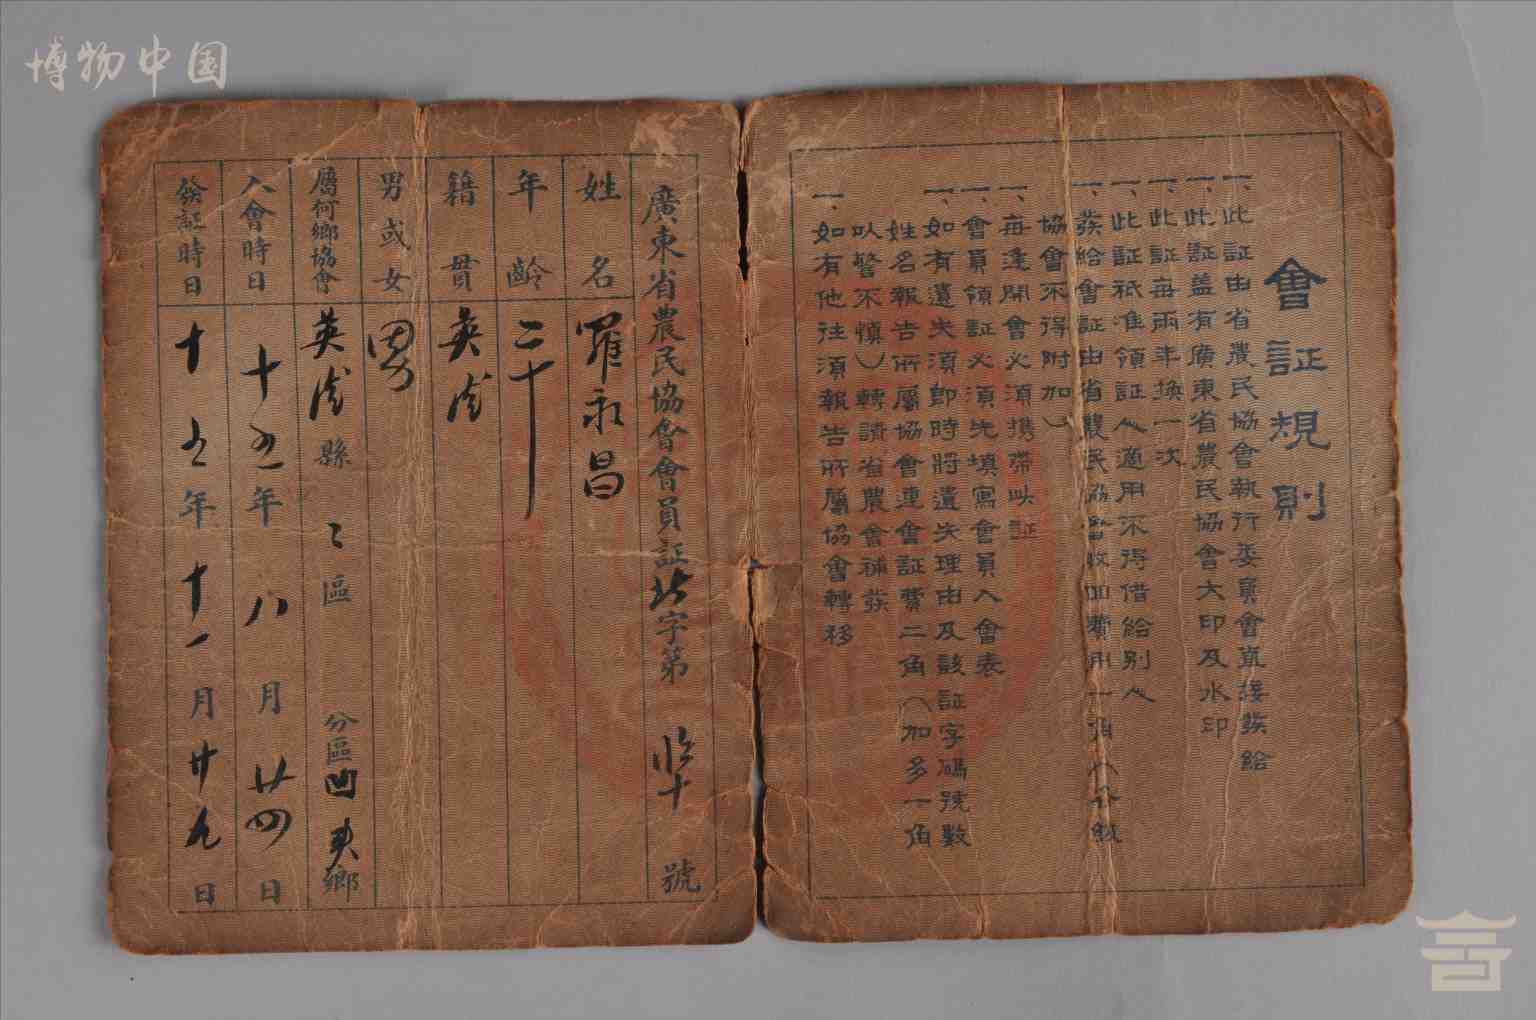 博物中国
會証規則
一、此証由省農民協會執行委員會直接發給
一、此証蓋有廣東省農民協會大印及水印
一、此証每兩年換一次
一、此証祇准領証人適用不得借給別人
一、發給會証由省農民協會收回費用一角(各級
協會不得附加)
一、每逢開會必須攜帶此証
一、會員領証必須先填寫會員入會表
一、如有遺失須即時將遺失理由及該証字碼號數
姓名報告所屬協會連會証費二角(加多一角
以警不慎)轉請省農會補發
一、如有他往須報告所屬協會轉移
廣東省農民協會會員証 字第 號
姓名 羅永昌
年齡 二十
籍貫 英德
男或女 男
屬何鄉協會 英德縣 區 分區 鄉
入會時日 十五年八月廿四日
發証時日 十五年十一月廿九日